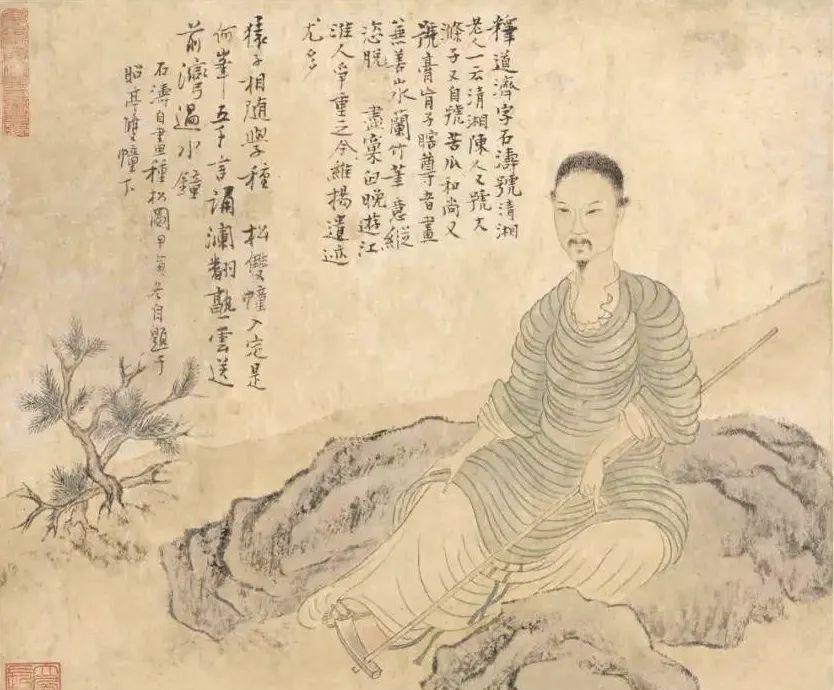 釋道濟字石濤號清湘
老人一云清湘陳人又號大
滌子又自號苦瓜和尚又
號膏肓子瞎尊者畫
兼善水蘭竹筆意縱
恣脫盡窠臼晚遊江
淮人爭重之今維揚遺迹
尤多
猿子相隨學種松雙幢入定是
何峯五千言誦瀾翻熟雲送
前灣過水鐘
石濤自畫種松圖甲寅冬自題于
昭亭雙幢下